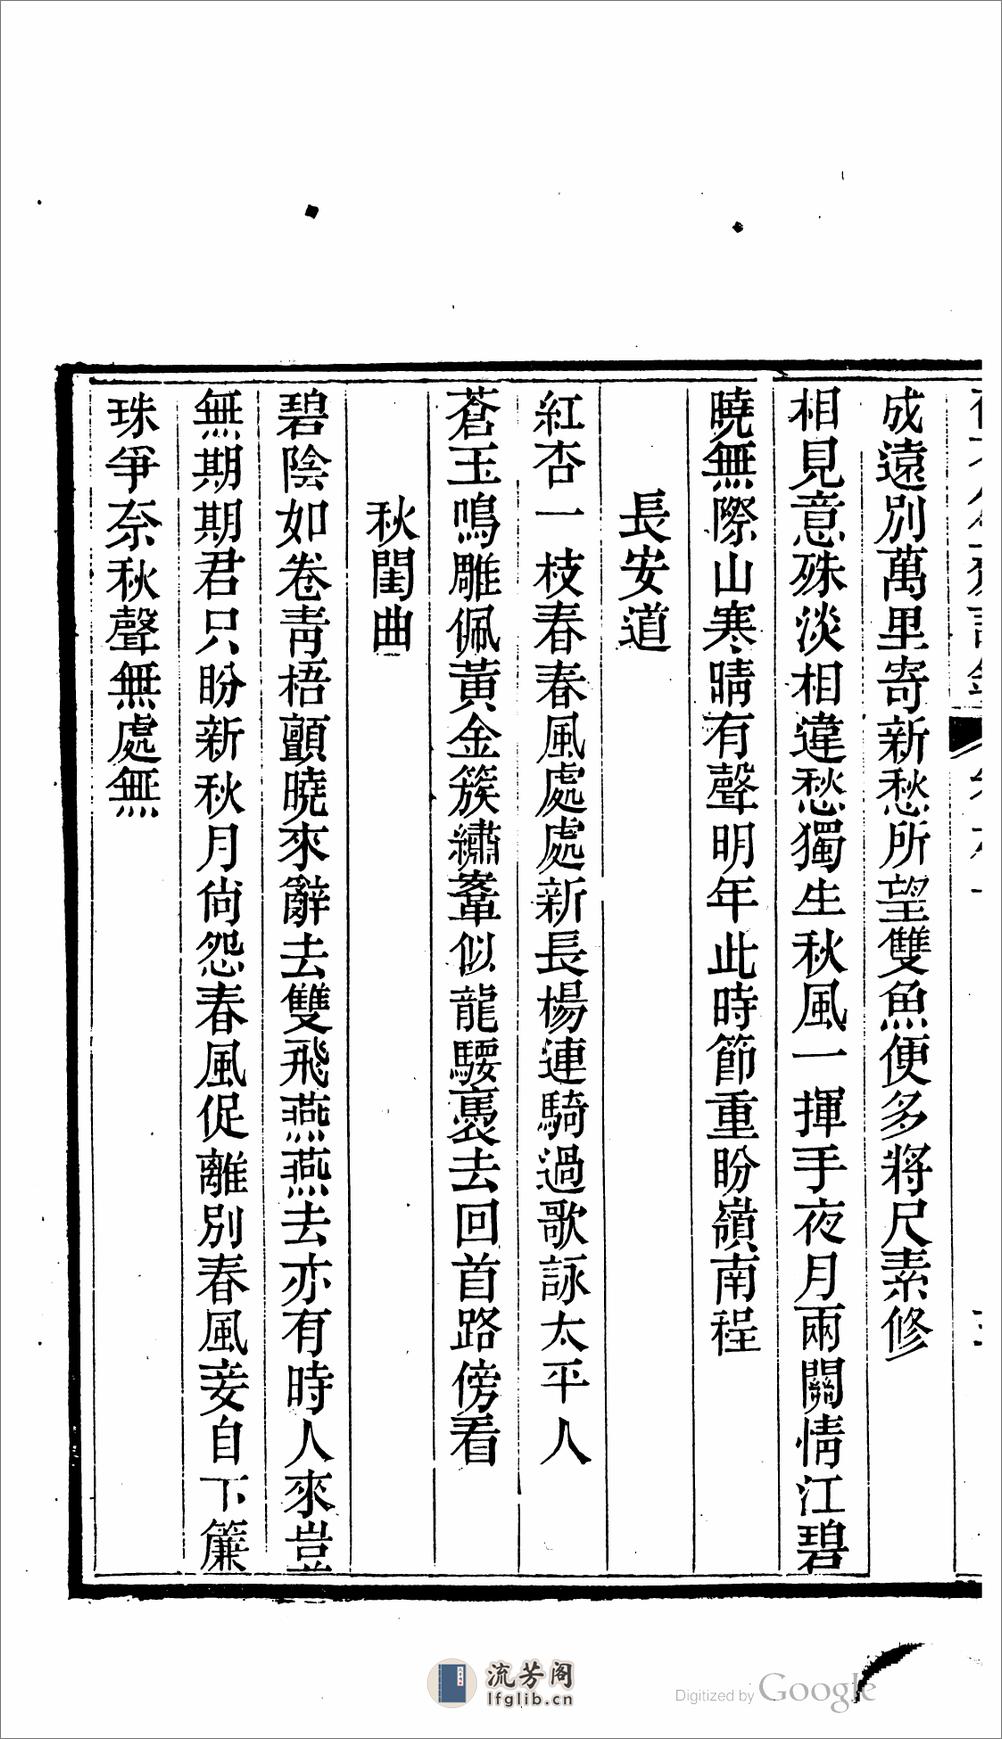 成遠別萬里寄新愁所望雙魚便多將尺素修
相見意殊淡相違愁獨生秋風一揮手夜月兩關情江碧
曉無際山寒晴有聲明年此時節重盼嶺南程
長安道
紅杏一枝春春風處處新長楊連騎過歌詠太平人
蒼玉鳴雕佩黃金簇繡鞌似龍騕褭去回首路傍看
秋閨曲
碧陰如卷青梧顫曉來辭去雙飛燕燕去亦有時人來豈
無期期君只盼新秋月尙怨春風促離別春風妾自下簾
珠爭奈秋聲無處無
流芳阁
lfglib.cn
Digitized by Google